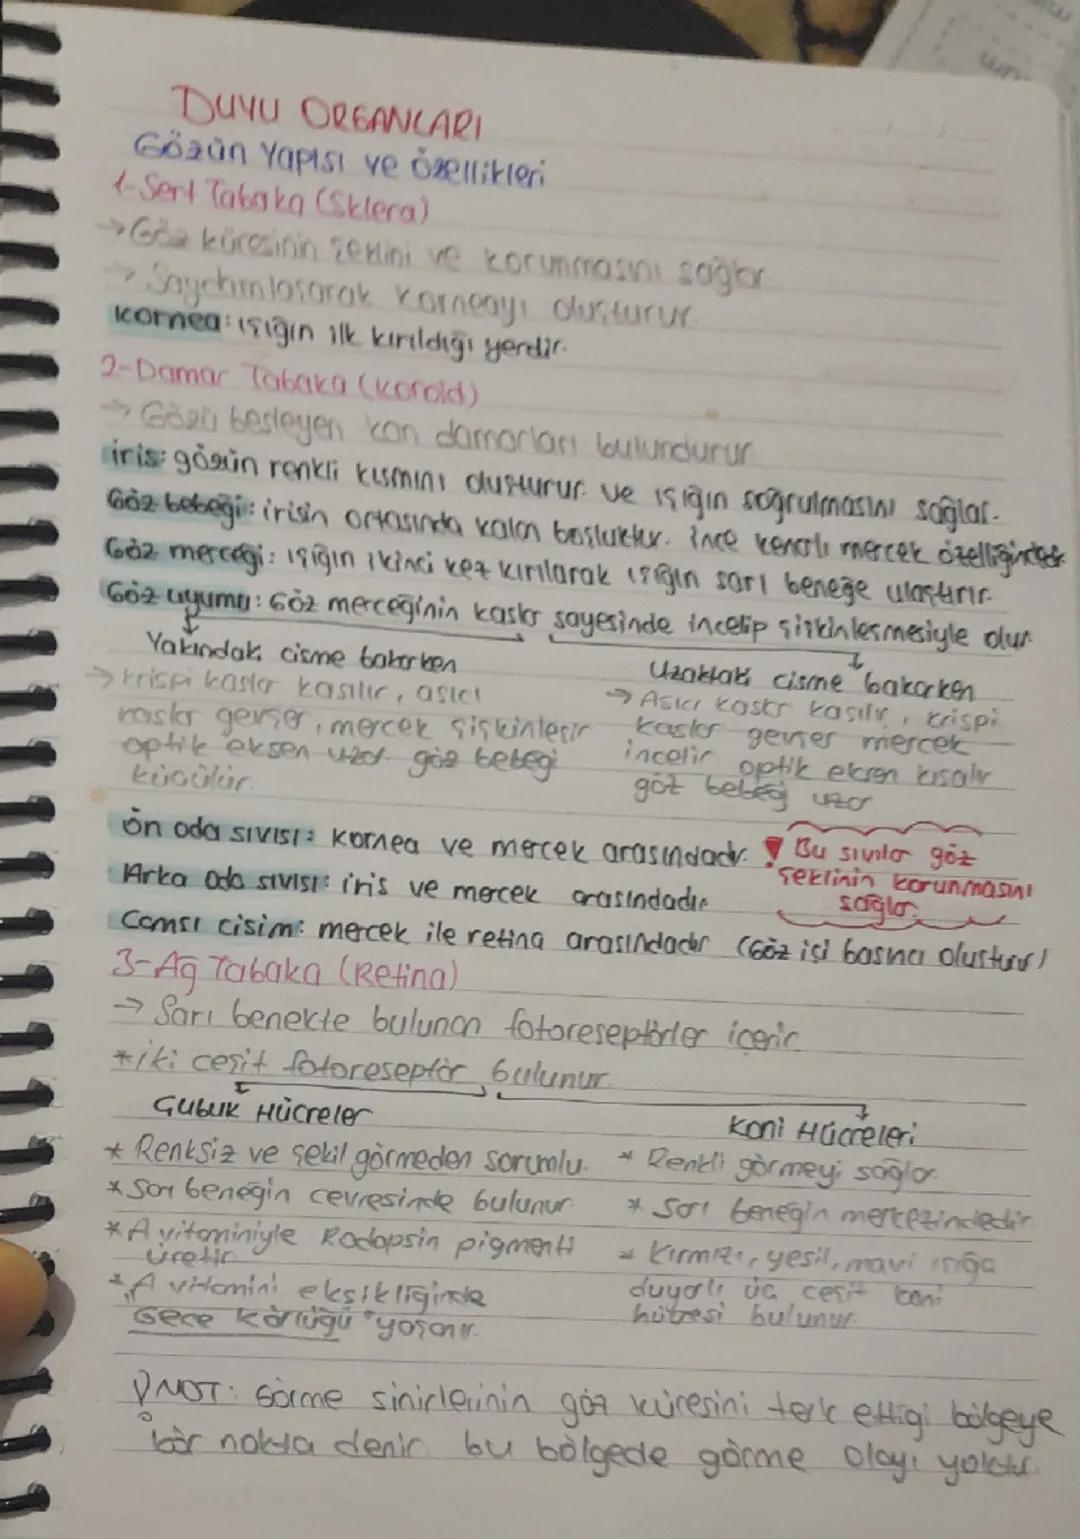 DUYU ORGANLARI
Gözün Yapısı ve Özellikleri
1-Sert Tabaka (Sklera)
→Göz küresinin şeklini ve korunmasını sağlar
→ Saydamlaşarak korneayı oluşturur.
Kornea: ışığın ilk kırıldığı yerdir.
2-Damar Tabaka (Koroid)
→ Gözü besleyen kan damarları bulundurur
iris: gözün renkli kısmını oluşturur ve ışığın soğrulmasını sağlar.
Göz bebeği: irisin ortasında kalan boşluktur. ince kenarlı mercek özelliğindedir
Göz merceği: ışığın ikinci kez kırılarak ışığın sarı beneğe ulaştırır.
Göz uyumu: Göz merceğinin kaslar sayesinde incelip şişkinleşmesiyle olur
Yakındaki cisme bakarken
→ krispi kaslar kasılır, asıcı
kaslar gevşer, mercek şişkinleşir
optik eksen uzar göz bebeği
küçülür.
Uzaktaki cisme bakarken
→ Asıcı kaslar kasılır, krispi
kaslar gevşer mercek
incelir optik eksen kısalır
göz bebeği uzar
ön oda sıvısı: kornea ve mercek arasındadır.
Arka oda sıvısı: iris ve mercek arasındadır
! Bu sıvılar göz
şeklinin korunmasını
sağlar.
Camsı cisim: mercek ile retina arasındadır (Göz içi basıncı oluşturur)
3-Ağ Tabaka (Retina)
→ Sarı benekte bulunan fotoreseptörler içerir
*iki çeşit fotoreseptör bulunur
Çubuk Hücreler
* Renksiz ve şekil görmeden sorumlu.
* Sarı beneğin çevresinde bulunur
* A vitaminiyle Rodopsin pigmenti
üretir
* A vitamini eksikliğinde
"Gece körlüğü" yaşanır.
Koni Hücreleri
* Renkli görmeyi sağlar
* Sarı beneğin merkezindedir
* Kırmızı, yeşil, mavi ışığa
duyarlı üç çeşit koni
hücresi bulunur.
! NOT: Görme sinirlerinin göz küresini terk ettiği bölgeye
kör nokta denir bu bölgede görme olayı yoktur.